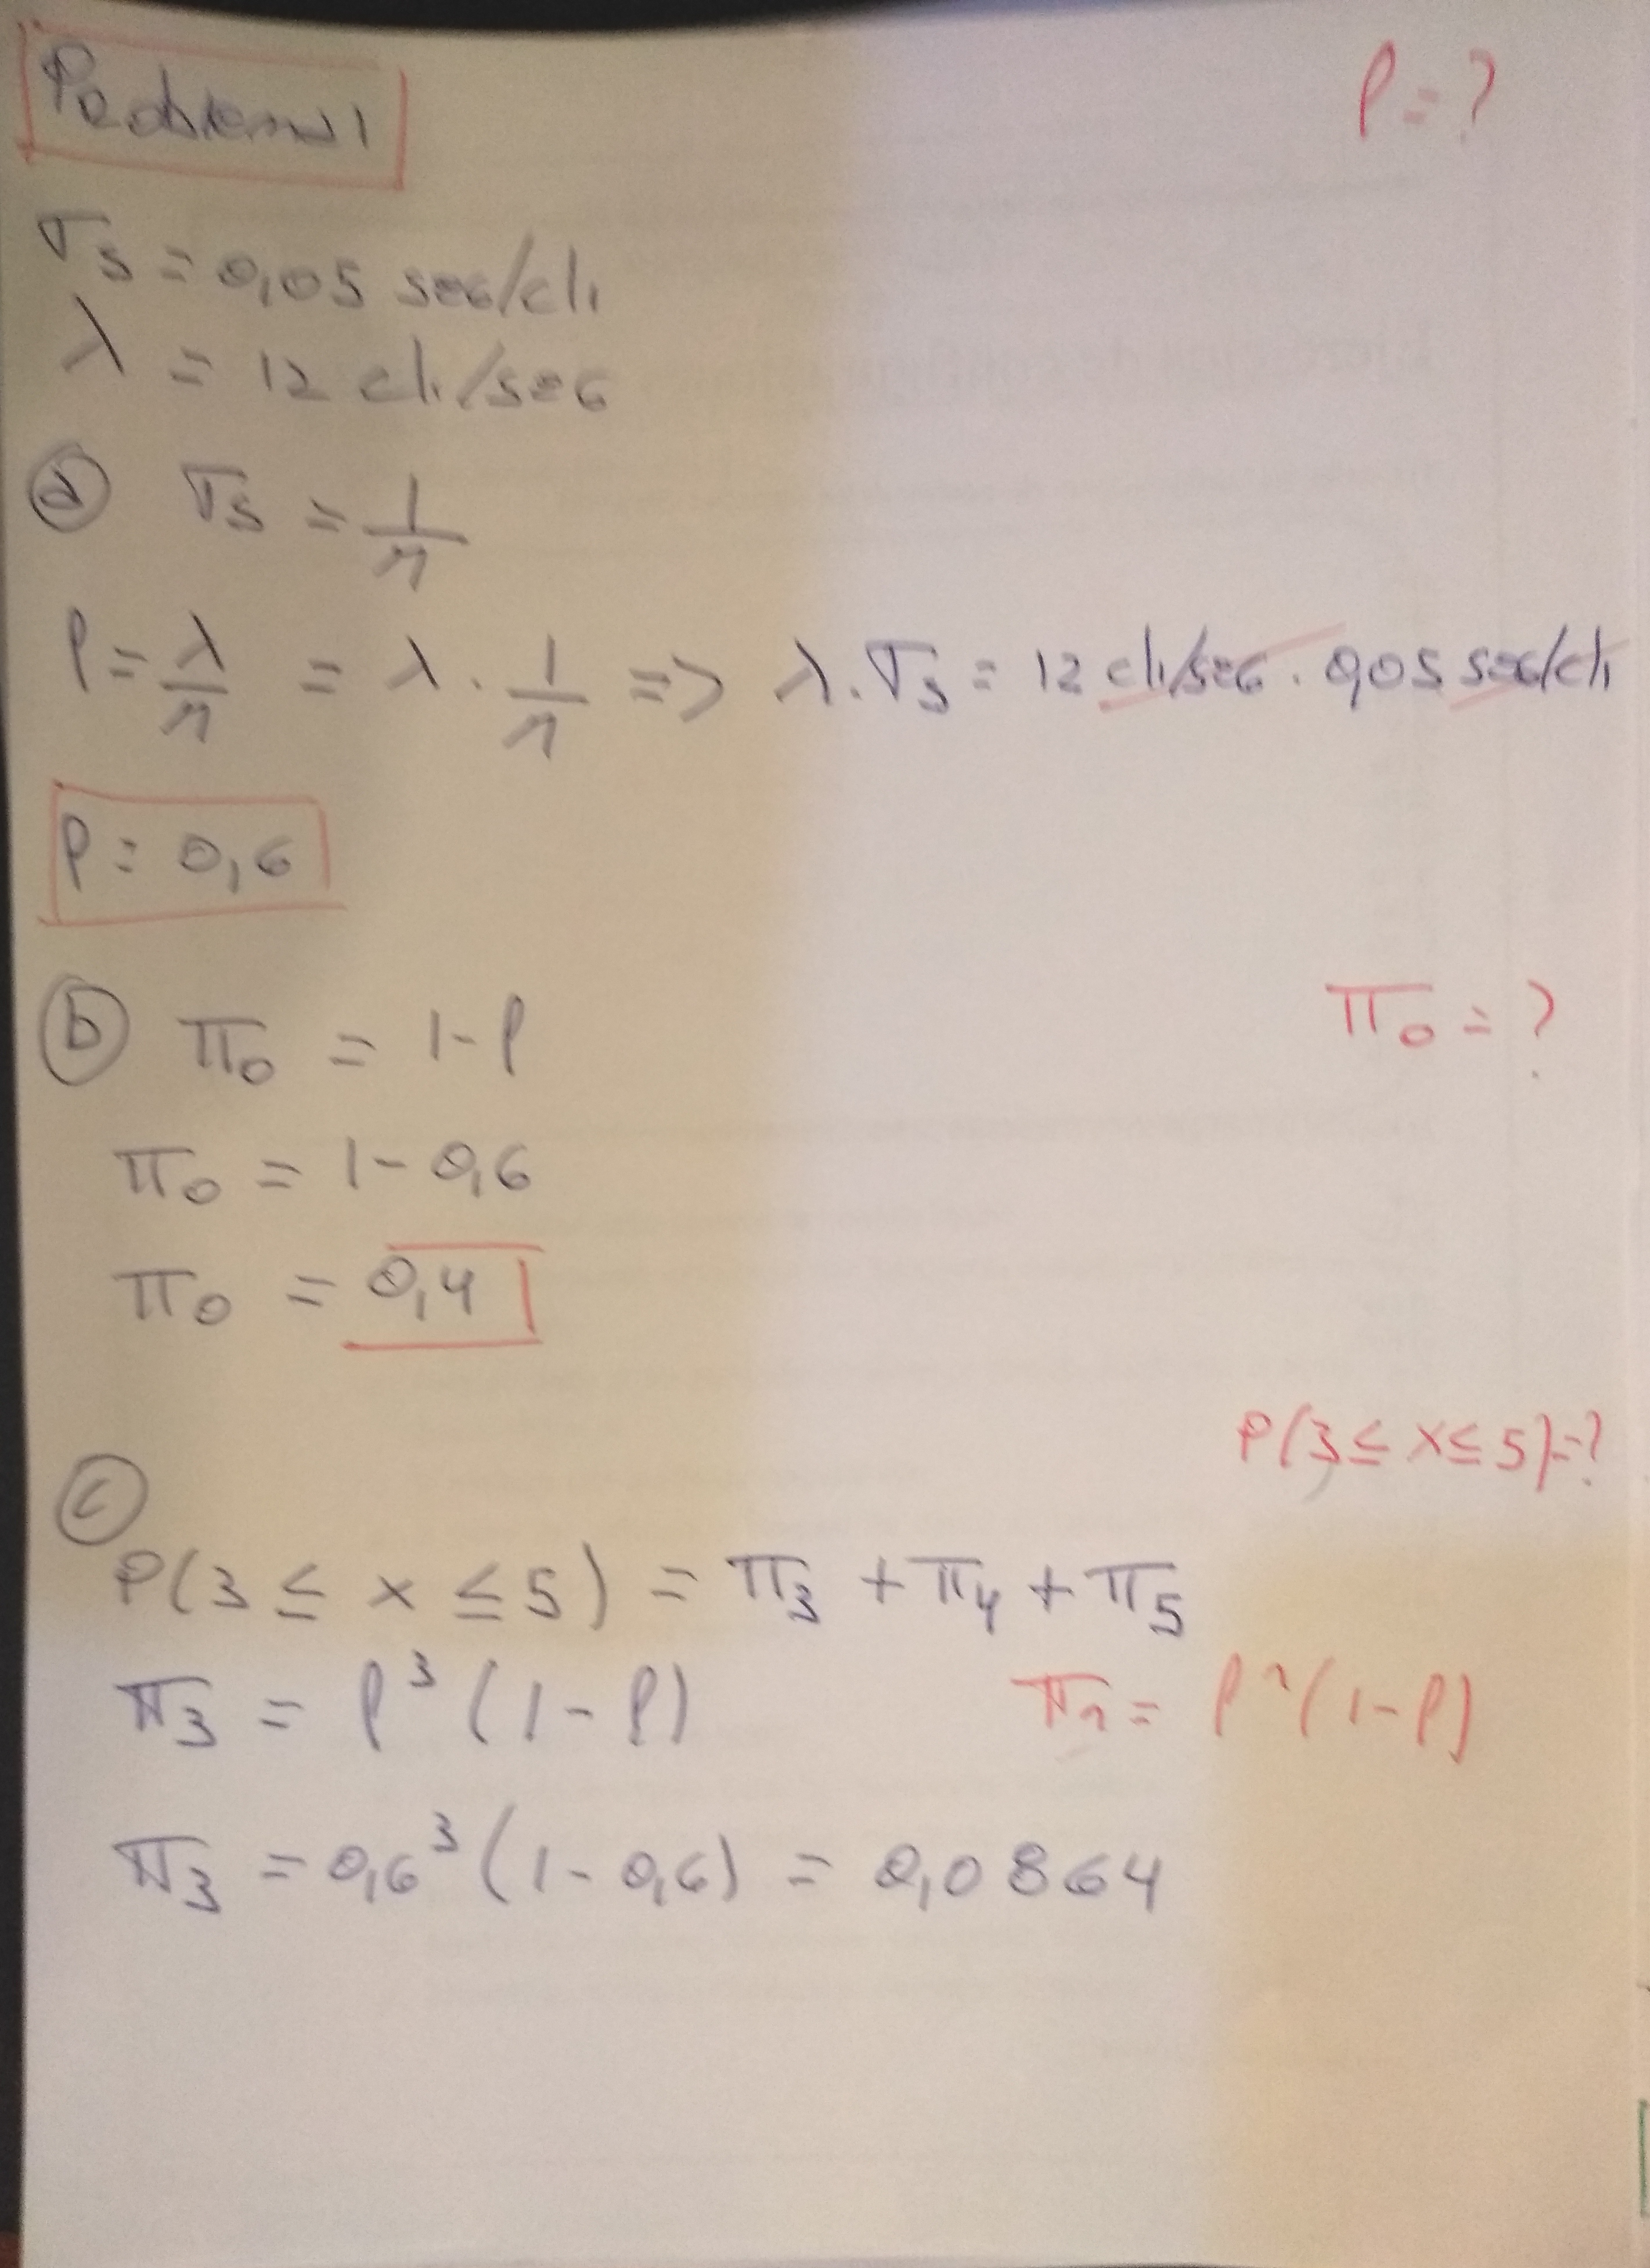 Problema 1
ρ = ?
Ts = 0,05 seg/cli
λ = 12 cli/seg
a) Ts = 1/μ
ρ = λ/μ = λ · 1/μ => λ·Ts = 12 cli/seg · 0,05 seg/cli
ρ = 0,6
b) π0 = 1-ρ
π0 = ?
π0 = 1 - 0,6
π0 = 0,4
P(3 ≤ x ≤ 5) = ?
c)
P(3 ≤ x ≤ 5) = π3 + π4 + π5
π3 = ρ³ (1-ρ)
πn = ρⁿ (1-ρ)
π3 = 0,6³ (1 - 0,6) = 0,0864